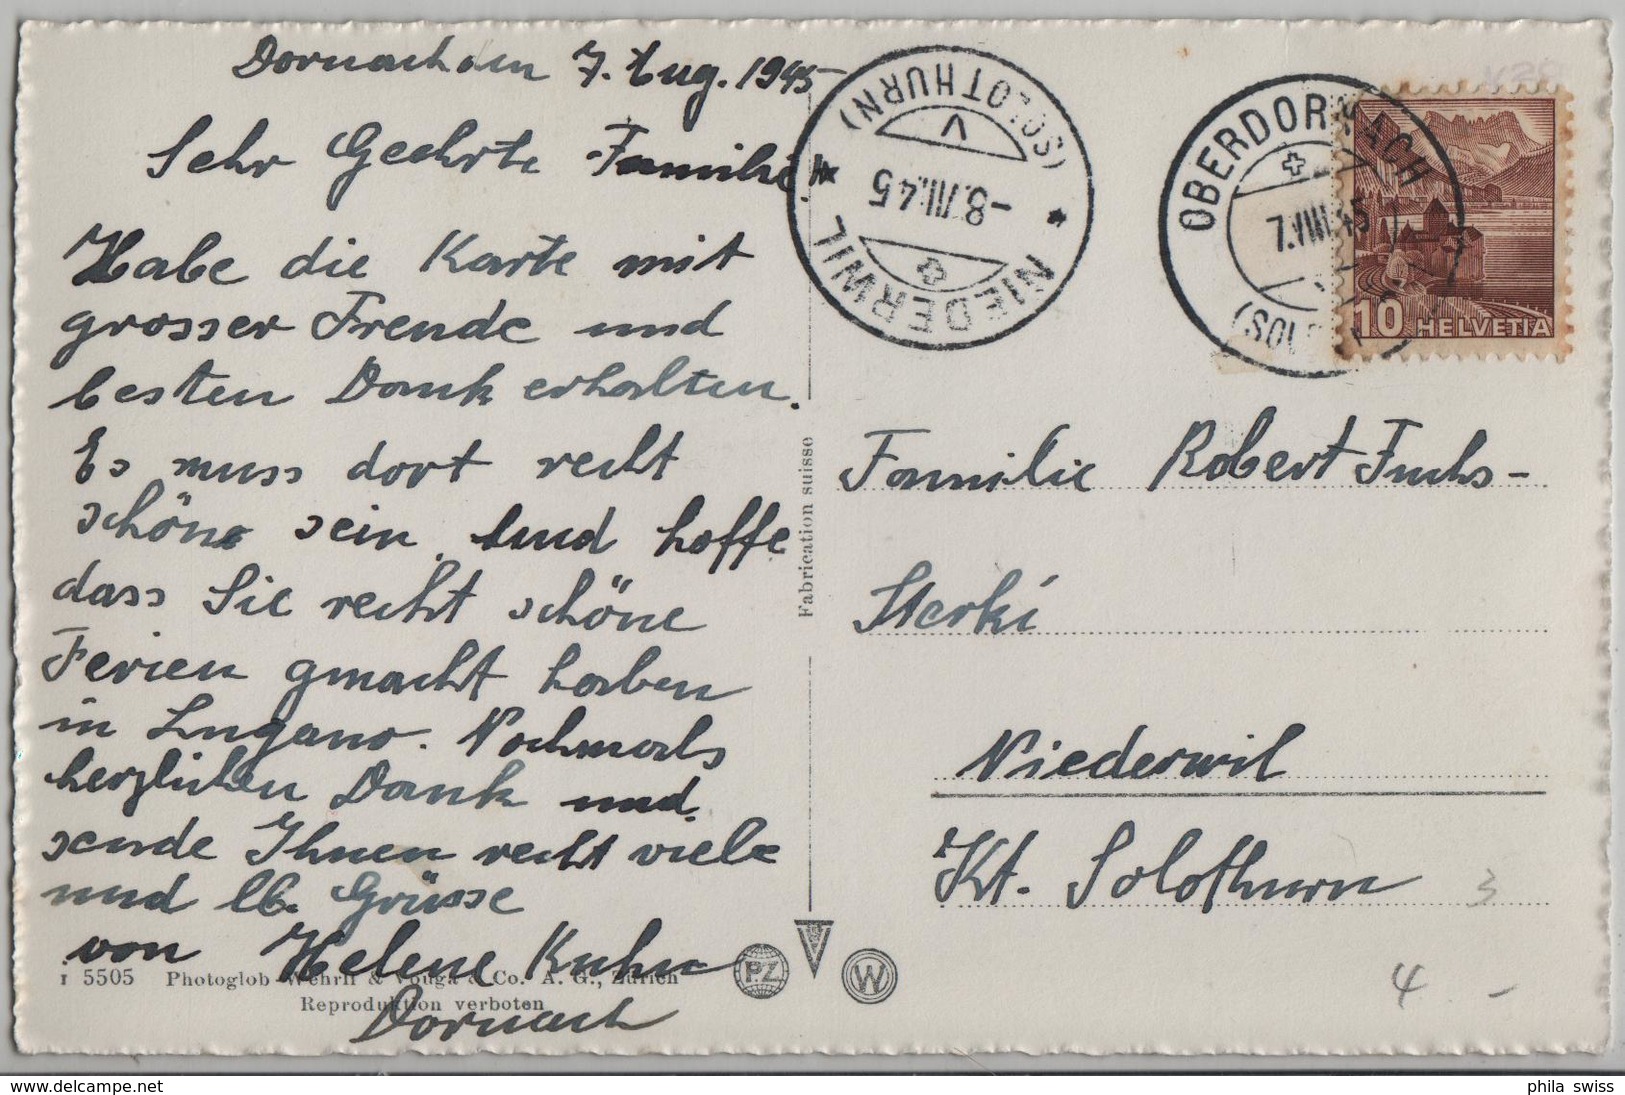 Dornach den 7. Aug. 1945
Sehr Geehrte Familie!
Habe die Karte mit
grosser Freude und
besten Dank erhalten.
Es muss dort recht
schöne sein, und hoffe
dass Sie recht schöne
Ferien gmacht haben
in Lugano. Nochmals
herzlichen Dank und
sende Ihnen recht viele
und lb. Grüsse
von Helene Kuhn
Dornach
1 5505 Photoglob-Wehrli & Vouga & Co. A. G., Zürich
Reproduktion verboten
Fabrication suisse
PZ
W
NIEDERWIL
(SOLOTHURN)
V
-8.VIII.45
OBERDORNACH
7.VIII.45
10 HELVETIA
Familie Robert Fuchs-
Sterki
Niederwil
Kt. Solothurn
3
4 -
delcampe.net
phila swiss